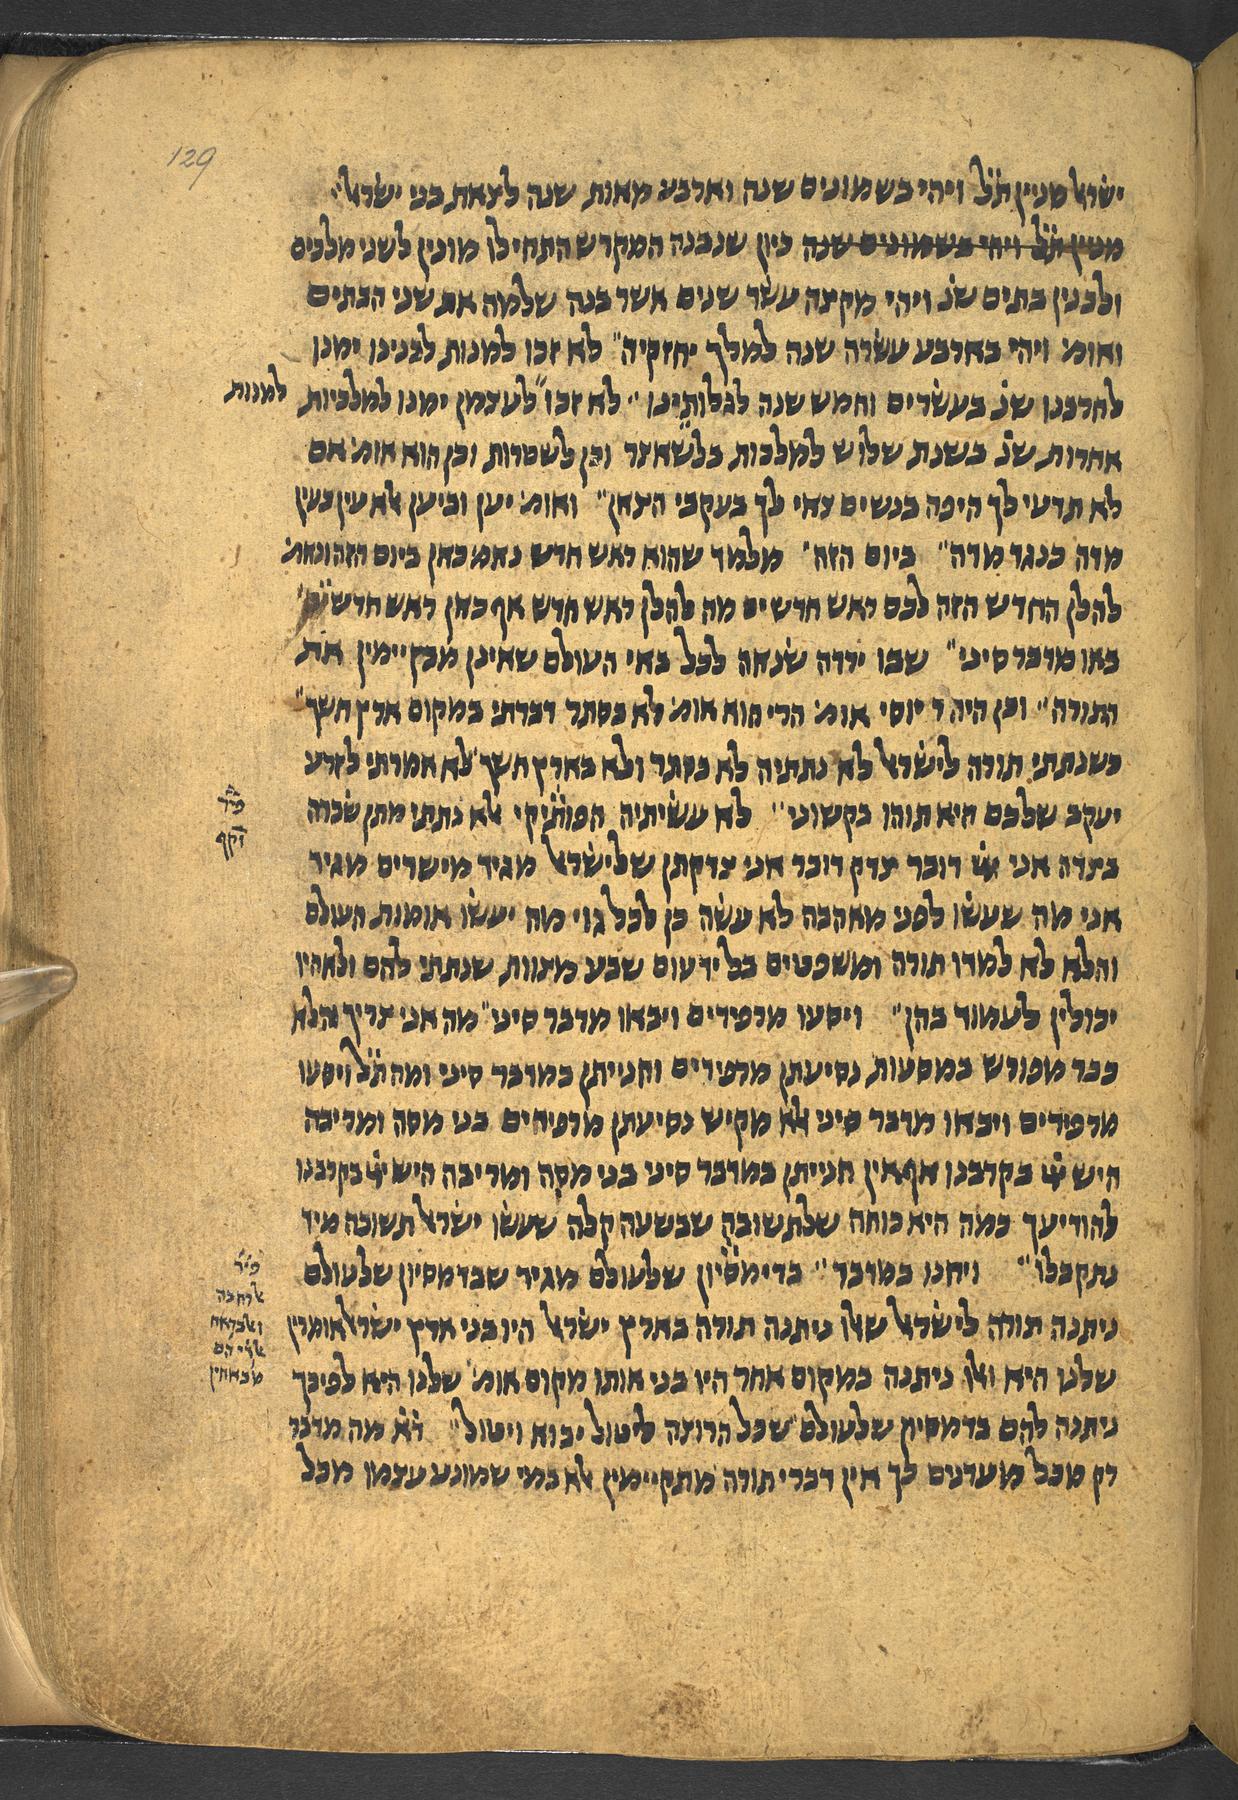 129
ישראל מניין ת״ל ויהי בשמונים שנה וארבע מאות שנה לצאת בני ישראל
מניין ת״ל ויהי בשמונים שנה כיון שנבנה המקדש התחילו מונין לשני מלכים
ולבנין בתים שנ׳ ויהי מקצה עשר שנים אשר בנה שלמה את שני הבתים
ואומ׳ ויהי בארבע עשרה שנה למלך יחזקיה״ לא זכו למנות לבנינו ימנו
לחרבנו שנ׳ בעשרים וחמש שנה לגלותינו״ לא זכו לעצמן ימנו למלכיות
למנות
אחרות שנ׳ בשנת שלוש למלכות בלשאצר וכן לשטרות וכן הוא אומ׳ אם
לא תדעי לך היפה בנשים צאי לך בעקבי הצאן״ ואומ׳ יען וביען אלא עין בעין
מדה כנגד מדה״ ביום הזה׳ מלמד שהוא ראש חדש נאמ׳ כאן ביום הזה ונאמ׳
להלן החדש הזה לכם ראש חדשים מה להלן ראש חדש אף כאן ראש חדש
באו מדבר סיני״ שבו ירדה שנאה לכל באי העולם שאינן מקיימין את
התורה״ וכן היה ר׳ יוסי אומ׳ הרי הוא אומ׳ לא בסתר דברתי במקום ארץ חשך״
כשנתתי תורה לישראל לא נתתיה לא בסתר ולא בארץ חשך לא אמרתי לזרע
יעקב שלכם היא תוהו בקשוני״ לא עשיתיה הפותיקי אלא נתתי מתן שכרה
בצדה אני דובר צדק דובר אני צדקתן שלישראל מגיד מישרים מגיד
אני מה שעשו לפני מאהבה לא עשה כן לכל גוי מה יעשו אומות העולם
והלא לא למדו תורה ומשפטים בל ידעום שבע מצוות שנתתי להם ולא היו
יכולין לעמוד בהן״ ויסעו מרפידים ויבאו מדבר סיני״ מה אני צריך והלא
כבר מפורש במסעות נסיעתן מרפידים וחנייתן במדבר סיני ומה ת״ל ויסעו
מרפידים ויבאו מדבר סיני אלא מקיש נסיעתן מרפידים בני מסה ומריבה
היש בקרבנו אף אין חנייתן במדבר סיני בני מסה ומריבה היש בקרבנו
להודיעך כמה היא כוחה שלתשובה שבשעה קלה שעשו ישראל תשובה מיד
נתקבלו״ ויחנו במדבר״ בדימסיון שלעולם מגיד שבדמסיון שלעולם
ניתנה תורה לישראל שאלו ניתנה תורה בארץ ישראל היו בני ארץ ישראל אומרין
שלנו היא ואלו ניתנה במקום אחר היו בני אותו מקום אומ׳ שלנו היא לפיכך
ניתנה להם בדמסיון שלעולם שכל הרוצה ליטול יבוא ויטול״ ד״א מה מדבר
ריק מכל מעדנים כך אין דברי תורה מתקיימין אלא במי שמונע עצמו מכל